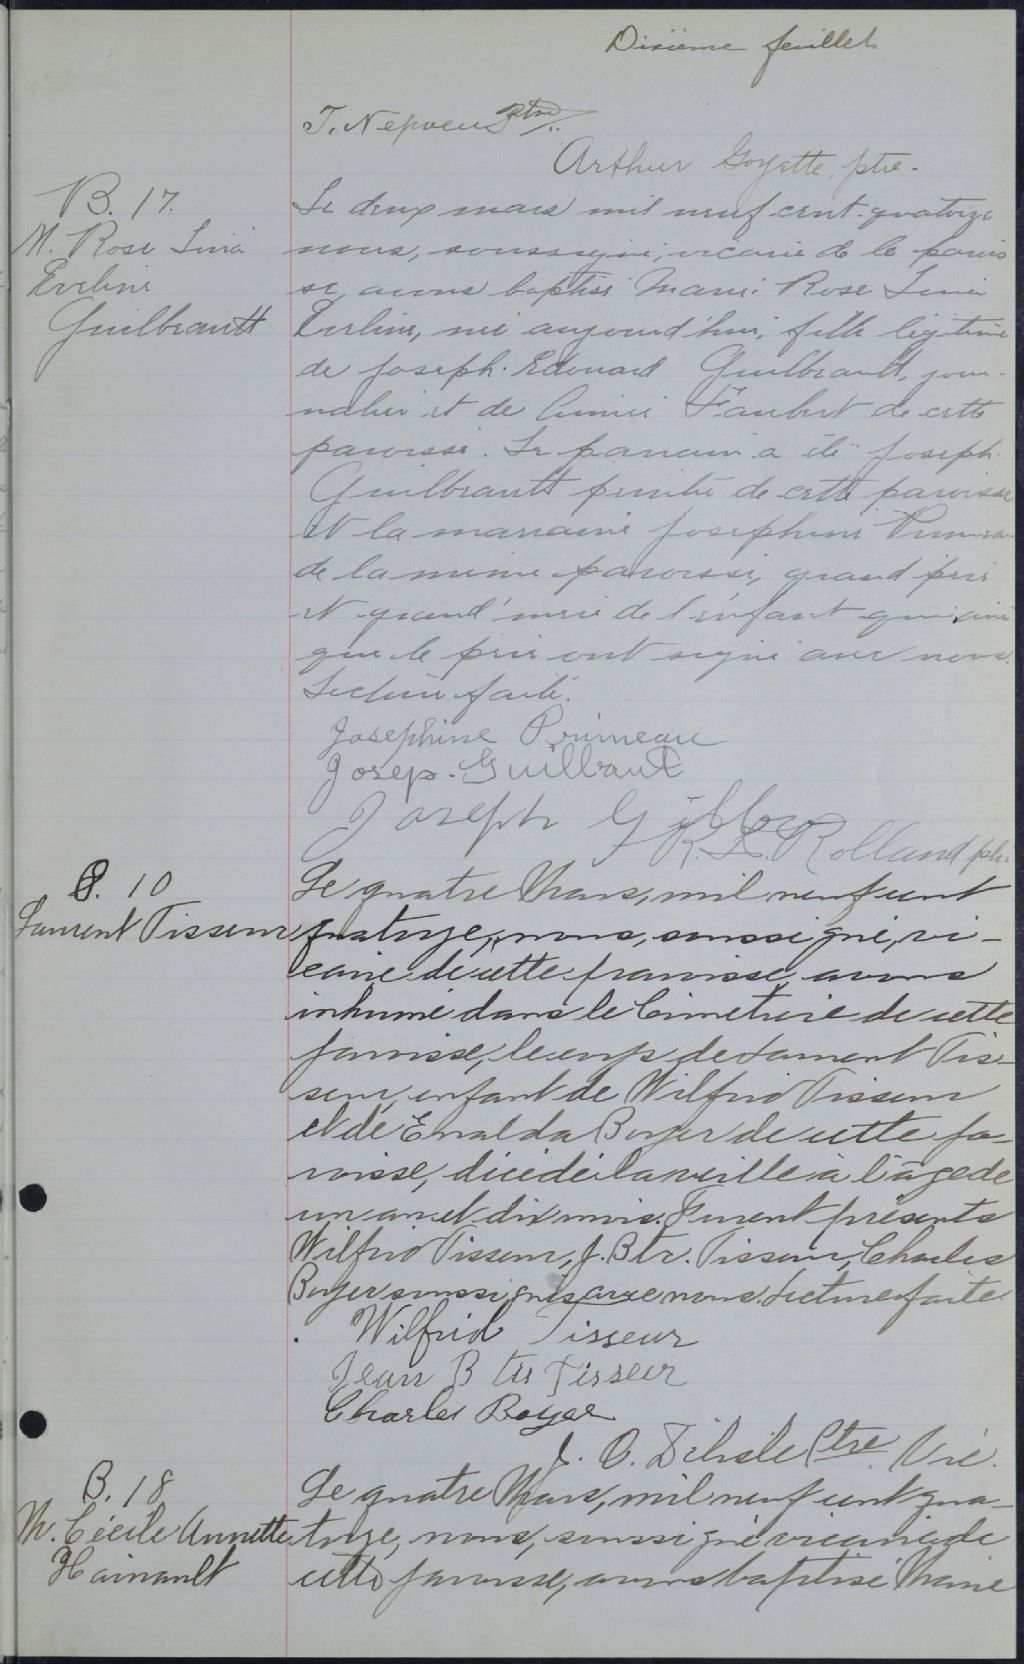 Dixième feuillet
T. Nepveu Ptre
Arthur Goyette, ptre.
B. 17.
M. Rose Livia
Eveline
Guilbeault
Le deux mars mil neuf cent quatorze
nous, soussigné, vicaire de la parois
se, avons baptisé Marie Rose Livia
Eveline, née aujourd'hui, fille légitime
de Joseph-Edouard Guilbeault, jour-
nalier et de Faubert de cette
paroisse. Le parrain a été Joseph
Guilbeault de cette paroisse
et la marraine Josephine Primeau
de la même paroisse, grand père
et grand'mère de l'enfant qui ainsi
que le père ont signé avec nous.
Lecture faite.
Josephine Primeau
Josep. Guilbaut
Joseph
R. Z. Rolland ptre
S. 10
Laurent Tisseur
Le quatre Mars, mil neuf cent
quatorze, nous, soussigné, vi-
caire de cette paroisse, avons
inhumé dans le Cimetière de cette
paroisse, le corps de Laurent Tis-
seur, enfant de Wilfrid Tisseur
et de Enalda Boyer de cette pa-
roisse, décédé la veille à l'âge de
un an et dix mois. Furent présents
Wilfrid Tisseur, J. Bte. Tisseur, Charles
Boyer soussignés avec nous. Lecture faite.
Wilfrid Tisseur
Jean B te Tisseur
Charles Boyer
J. O. Delisle Ptre Vic.
B. 18
M. Cécile Annette
Hainault
Le quatre Mars, mil neuf cent qua-
torze, nous, soussigné vicaire de
cette paroisse, avons baptisé Marie